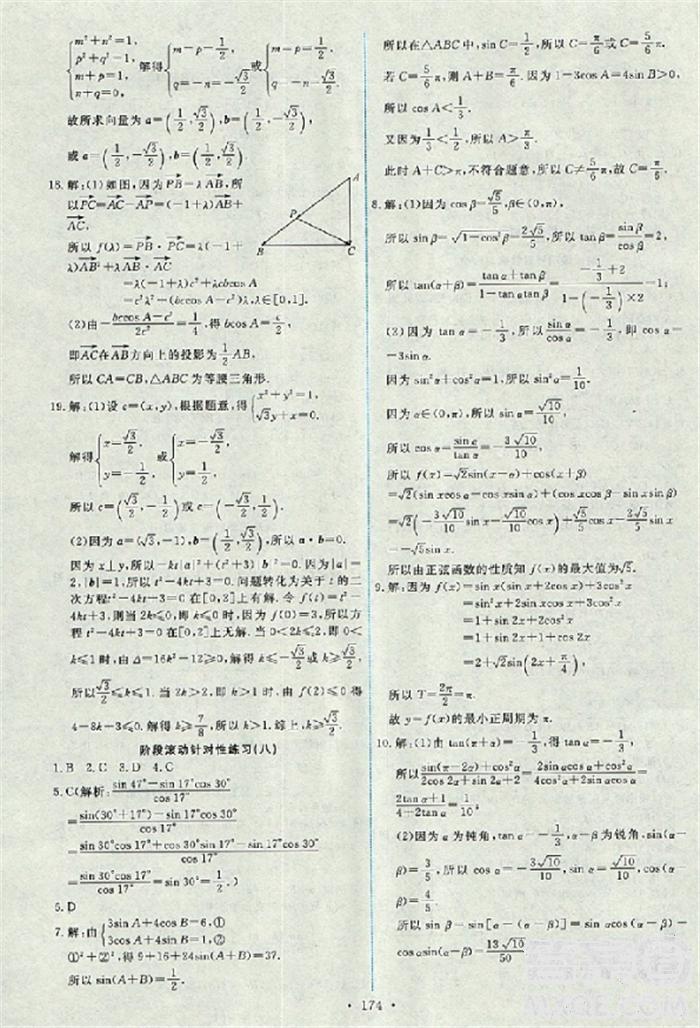 {m²+n²=1, p²+q²=1, m+p=1, n+q=0, 解得{m=p=1/2, q=-n=-√3/2, 或{m=p=1/2, q=-n=√3/2.
故所求向量为 a=(1/2,√3/2),b=(1/2,-√3/2)
或 a=(1/2,-√3/2),b=(1/2,√3/2)
18.解:(1)如图,因为PB=λAB,所
以PC=AC-AP=(-1+λ)AB+
AC,
A
P
B
C
所以 f(λ)=PB·PC=λ(-1+
λ)AB²+λAB·AC
=λ(-1+λ)c²+λcbcos A
=c²λ²-(bccos A-c²)λ,λ∈[0,1].
(2)由-(bccos A-c²)/2c²=1/4,得bcos A=c/2
即AC在AB方向上的投影为1/2AB,
所以 CA=CB,△ABC为等腰三角形.
19.解:(1)设 c=(x,y),根据题意,得{x²+y²=1, √3y+x=0.
解得{x=√3/2, y=-1/2, 或{x=-√3/2, y=1/2.
所以 c=(√3/2,-1/2)或 c=(-√3/2,1/2).
(2)因为 a=(√3,-1),b=(1/2,√3/2),所以 a·b=0.
因为 x⊥y,所以-kt|a|²+(t²+3)|b|²=0.因为|a|=
2,|b|=1,所以 t²-4kt+3=0.问题转化为关于 t 的二
次方程t²-4kt+3=0在[0,2]上有解.令 f(t)=t²-
4kt+3,则当2k≤0,即 k≤0时,因为 f(0)=3,所以方
程 t²-4kt+3=0在[0,2]上无解.当 0<2k≤2,即0<
k≤1时,由 Δ=16k²-12≥0,得解得 k≤-√3/2或k≥√3/2,
所以√3/2≤k≤1.当2k>2,即k>1时,由 f(2)≤0得
4-8k+3≤0,解得 k≥7/8,所以 k>1.综上,得 k≥√3/2.
阶段滚动针对性练习(八)
1.B 2.C 3.D 4.C
5.C(解析:(sin 47°-sin 17°cos 30°)/cos 17°
=(sin(30°+17°)-sin 17°cos 30°)/cos 17°
=(sin 30°cos 17°+cos 30°sin 17°-sin 17°cos 30°)/cos 17°
=sin 30°cos 17°/cos 17°=sin 30°=1/2.)
6.D
7.解:由{3sin A+4cos B=6,① 3cos A+4sin B=1,②
①²+②²,得 9+16+24sin(A+B)=37.
所以 sin(A+B)=1/2.
所以在△ABC中,sin C=1/2,所以 C=π/6或 C=5/6π.
若 C=5/6π,则 A+B=π/6.因为 1-3cos A=4sin B>0,
所以 cos A<1/3.
又因为1/3<1/2,所以 A>π/3.
此时 A+C>π,不符合题意,所以 C≠5/6π,故 C=π/6.
8.解:(1)因为 cos β=√5/5,β∈(0,π),
所以 sin β=√1-cos²β=2√5/5,所以 tan β=sin β/cos β=2
所以 tan(α+β)=(tan α+tan β)/(1-tan α·tan β)=(-1/3+2)/(1-(-1/3)×2)=1;
(2)因为 tan α=-1/3,所以sin α/cos α=-1/3,即 cos α=
-3sin α.
因为 sin²α+cos²α=1,所以 sin²α=1/10.
因为 α∈(0,π),所以 sin α=√10/10,
所以 cos α=sin α/tan α=-3√10/10,
所以 f(x)=√2sin(x-α)+cos(x+β)
=√2(sin xcos α-cos xsin α)+(cos xcos β-sin xsin β)
=√2(-3√10/10 sin x-√10/10 cos x)+√5/5 cos x-2√5/5 sin x
=-√5sin x.
所以由正弦函数的性质知 f(x)的最大值为√5.
9.解:因为 f(x)=sin x(sin x+2cos x)+3cos²x
=sin²x+2sin xcos x+3cos²x
=1+sin 2x+2cos²x
=1+sin 2x+1+cos 2x
=2+√2sin(2x+π/4),
所以 T=2π/2=π.
故 y=f(x)的最小正周期为 π.
10.解:(1)由 tan(π+α)=-1/3,得 tan α=-1/3,
(2)因为 α 为钝角,tan α=-1/3,α-β为锐角,sin(α-
β)=3/5,所以 cos α=-3√10/10,sin α=√10/10,cos(α-
β)=4/5,所以 sin β=sin[α-(α-β)]=sin αcos(α-β)-
cos αsin(α-β)=13√10/50
174